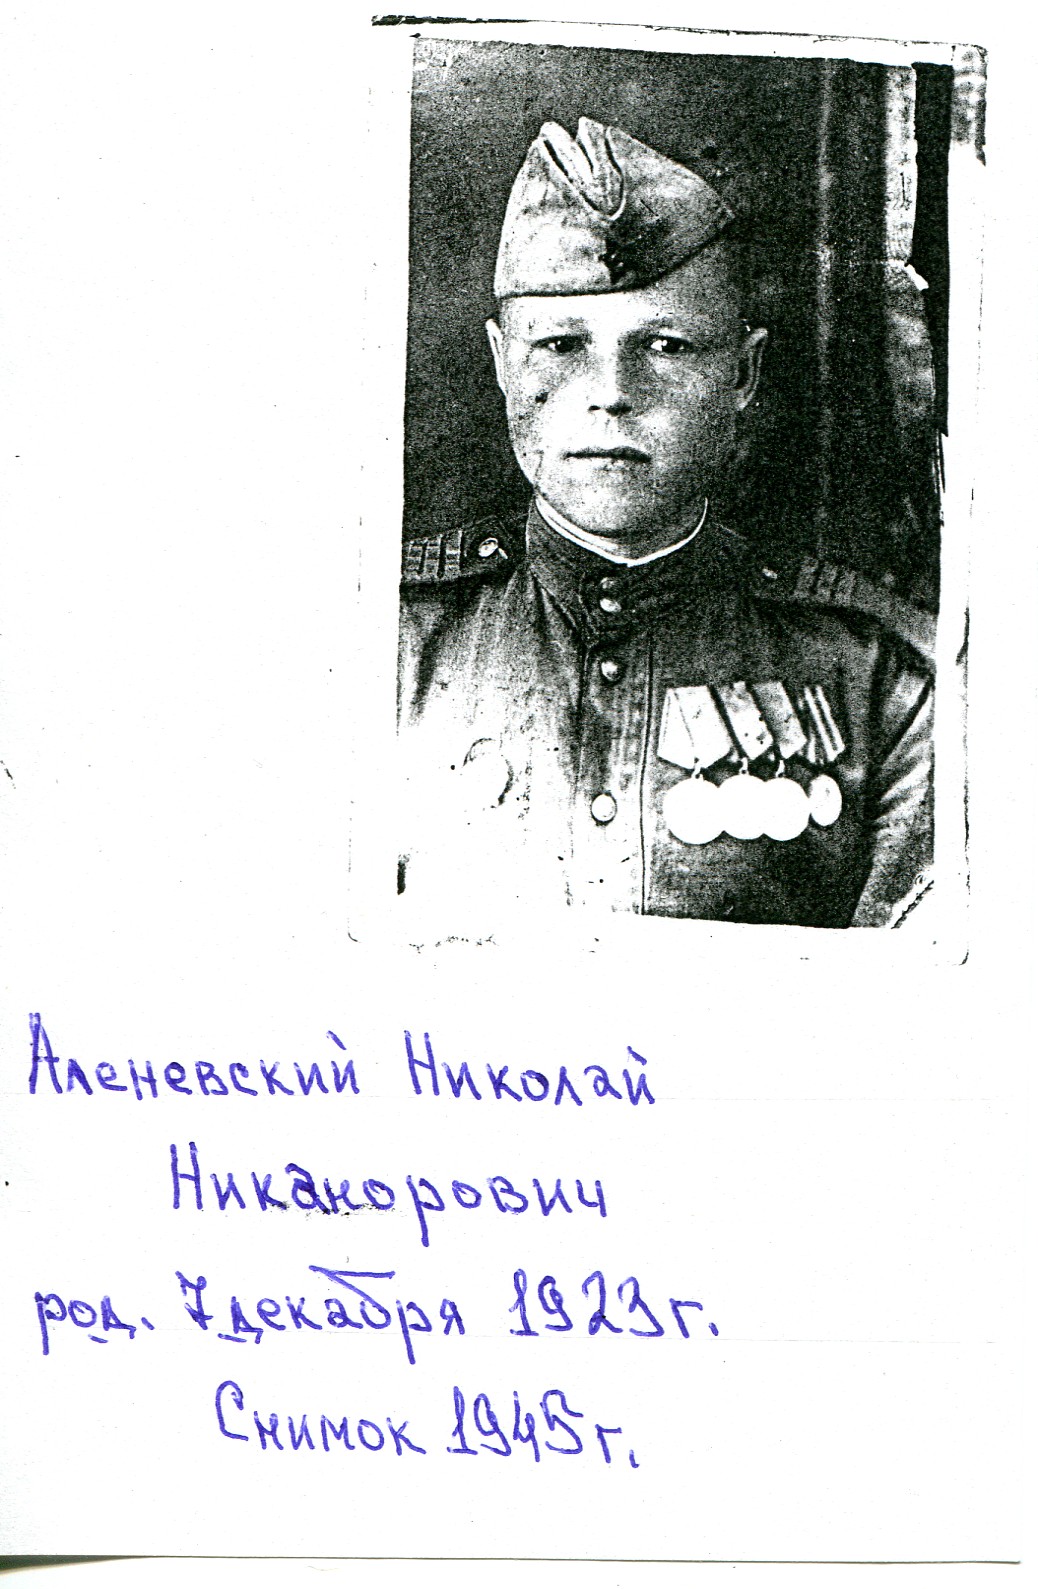 Аленевский Николай
Никанорович
род. 7 декабря 1923 г.
Снимок 1945 г.